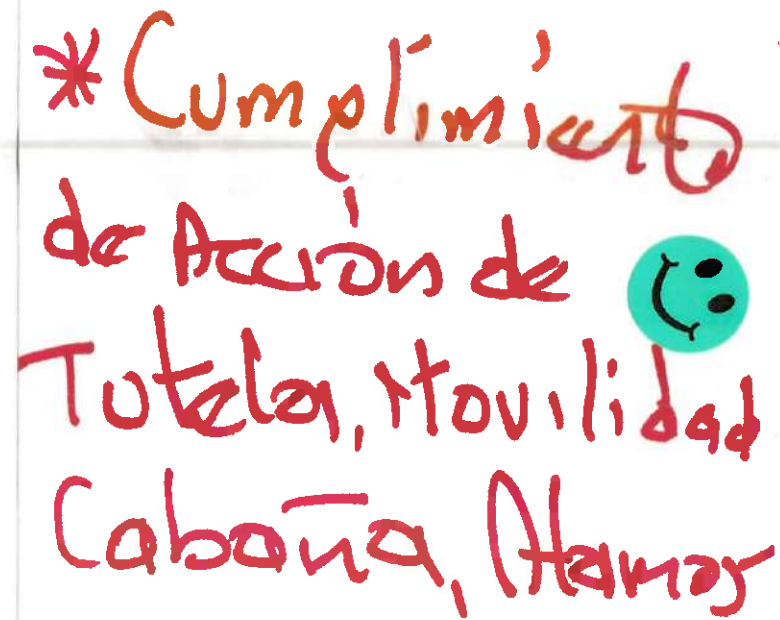 * Cumplimiento
de Acción de
Tutela, Movilidad
Cabaña, Alamos